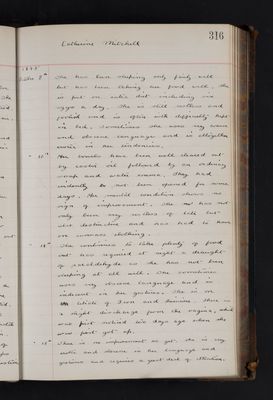 316
Catherine Mitchell
1895
Octbr 8th She has been sleeping only fairly well
but has been taking her food well. She
is put on extra diet including six
eggs a day. She is still restless and
and is often with difficulty kept
in bed. Sometimes she uses very
and obscene language and is altogether
erotic in her tendencies.
" 10th Her bowels have been well cleared out
by castor oil followed by an ordinary
soap and water enema. They had
evidently not been opened for some
days. Her mental condition shows no
sign of improvement. She has not
only been very restless of late but
also destructive and has had to have
on canvas clothing.
" 12th She continues to take plenty of food
but has required at night a draught
of paraldehyde as she has not been
sleeping at all well. She sometimes
uses very obscene language and is
indecent in her gestures. She is on
of Iron and Quinine. There is
a slight discharge from the vagina, which
was first noticed two days ago when she
was first got up.
" 15th There is no improvement as yet. She is very
erotic and obscene in her language and
gestures and requires a good deal of attention.